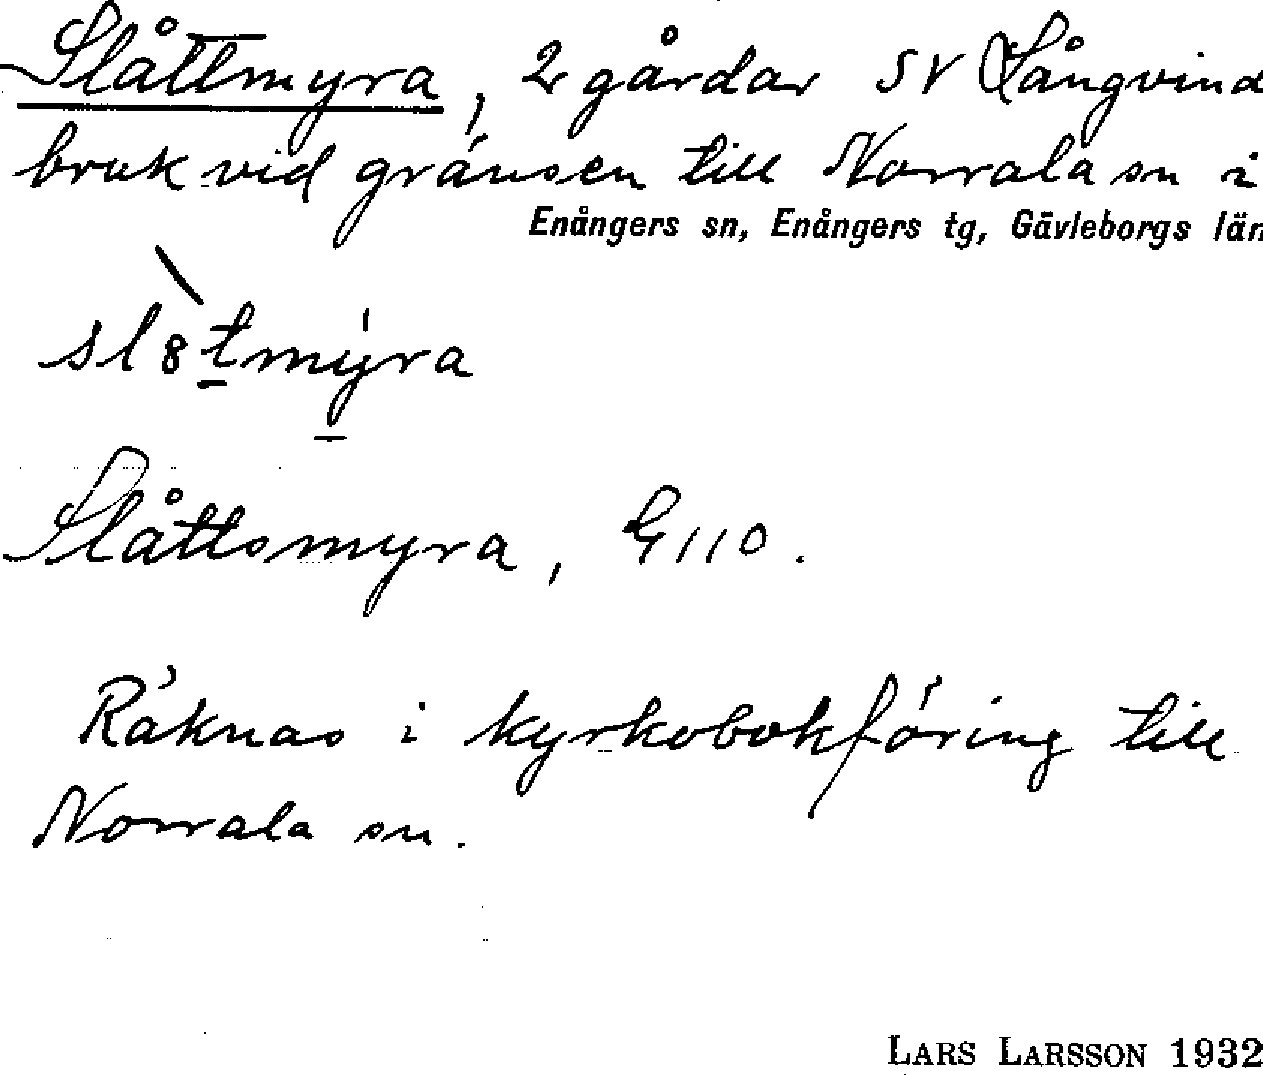 Slåttmyra, 2 gårdar SV Långvind
bruk vid gränsen till Norrala sn i
Enångers sn, Enångers tg, Gävleborgs län
sl8tmyra
Slåttsmyra, G 110.
Räknas i kyrkobokföring till
Norrala sn.
LARS LARSSON 1932